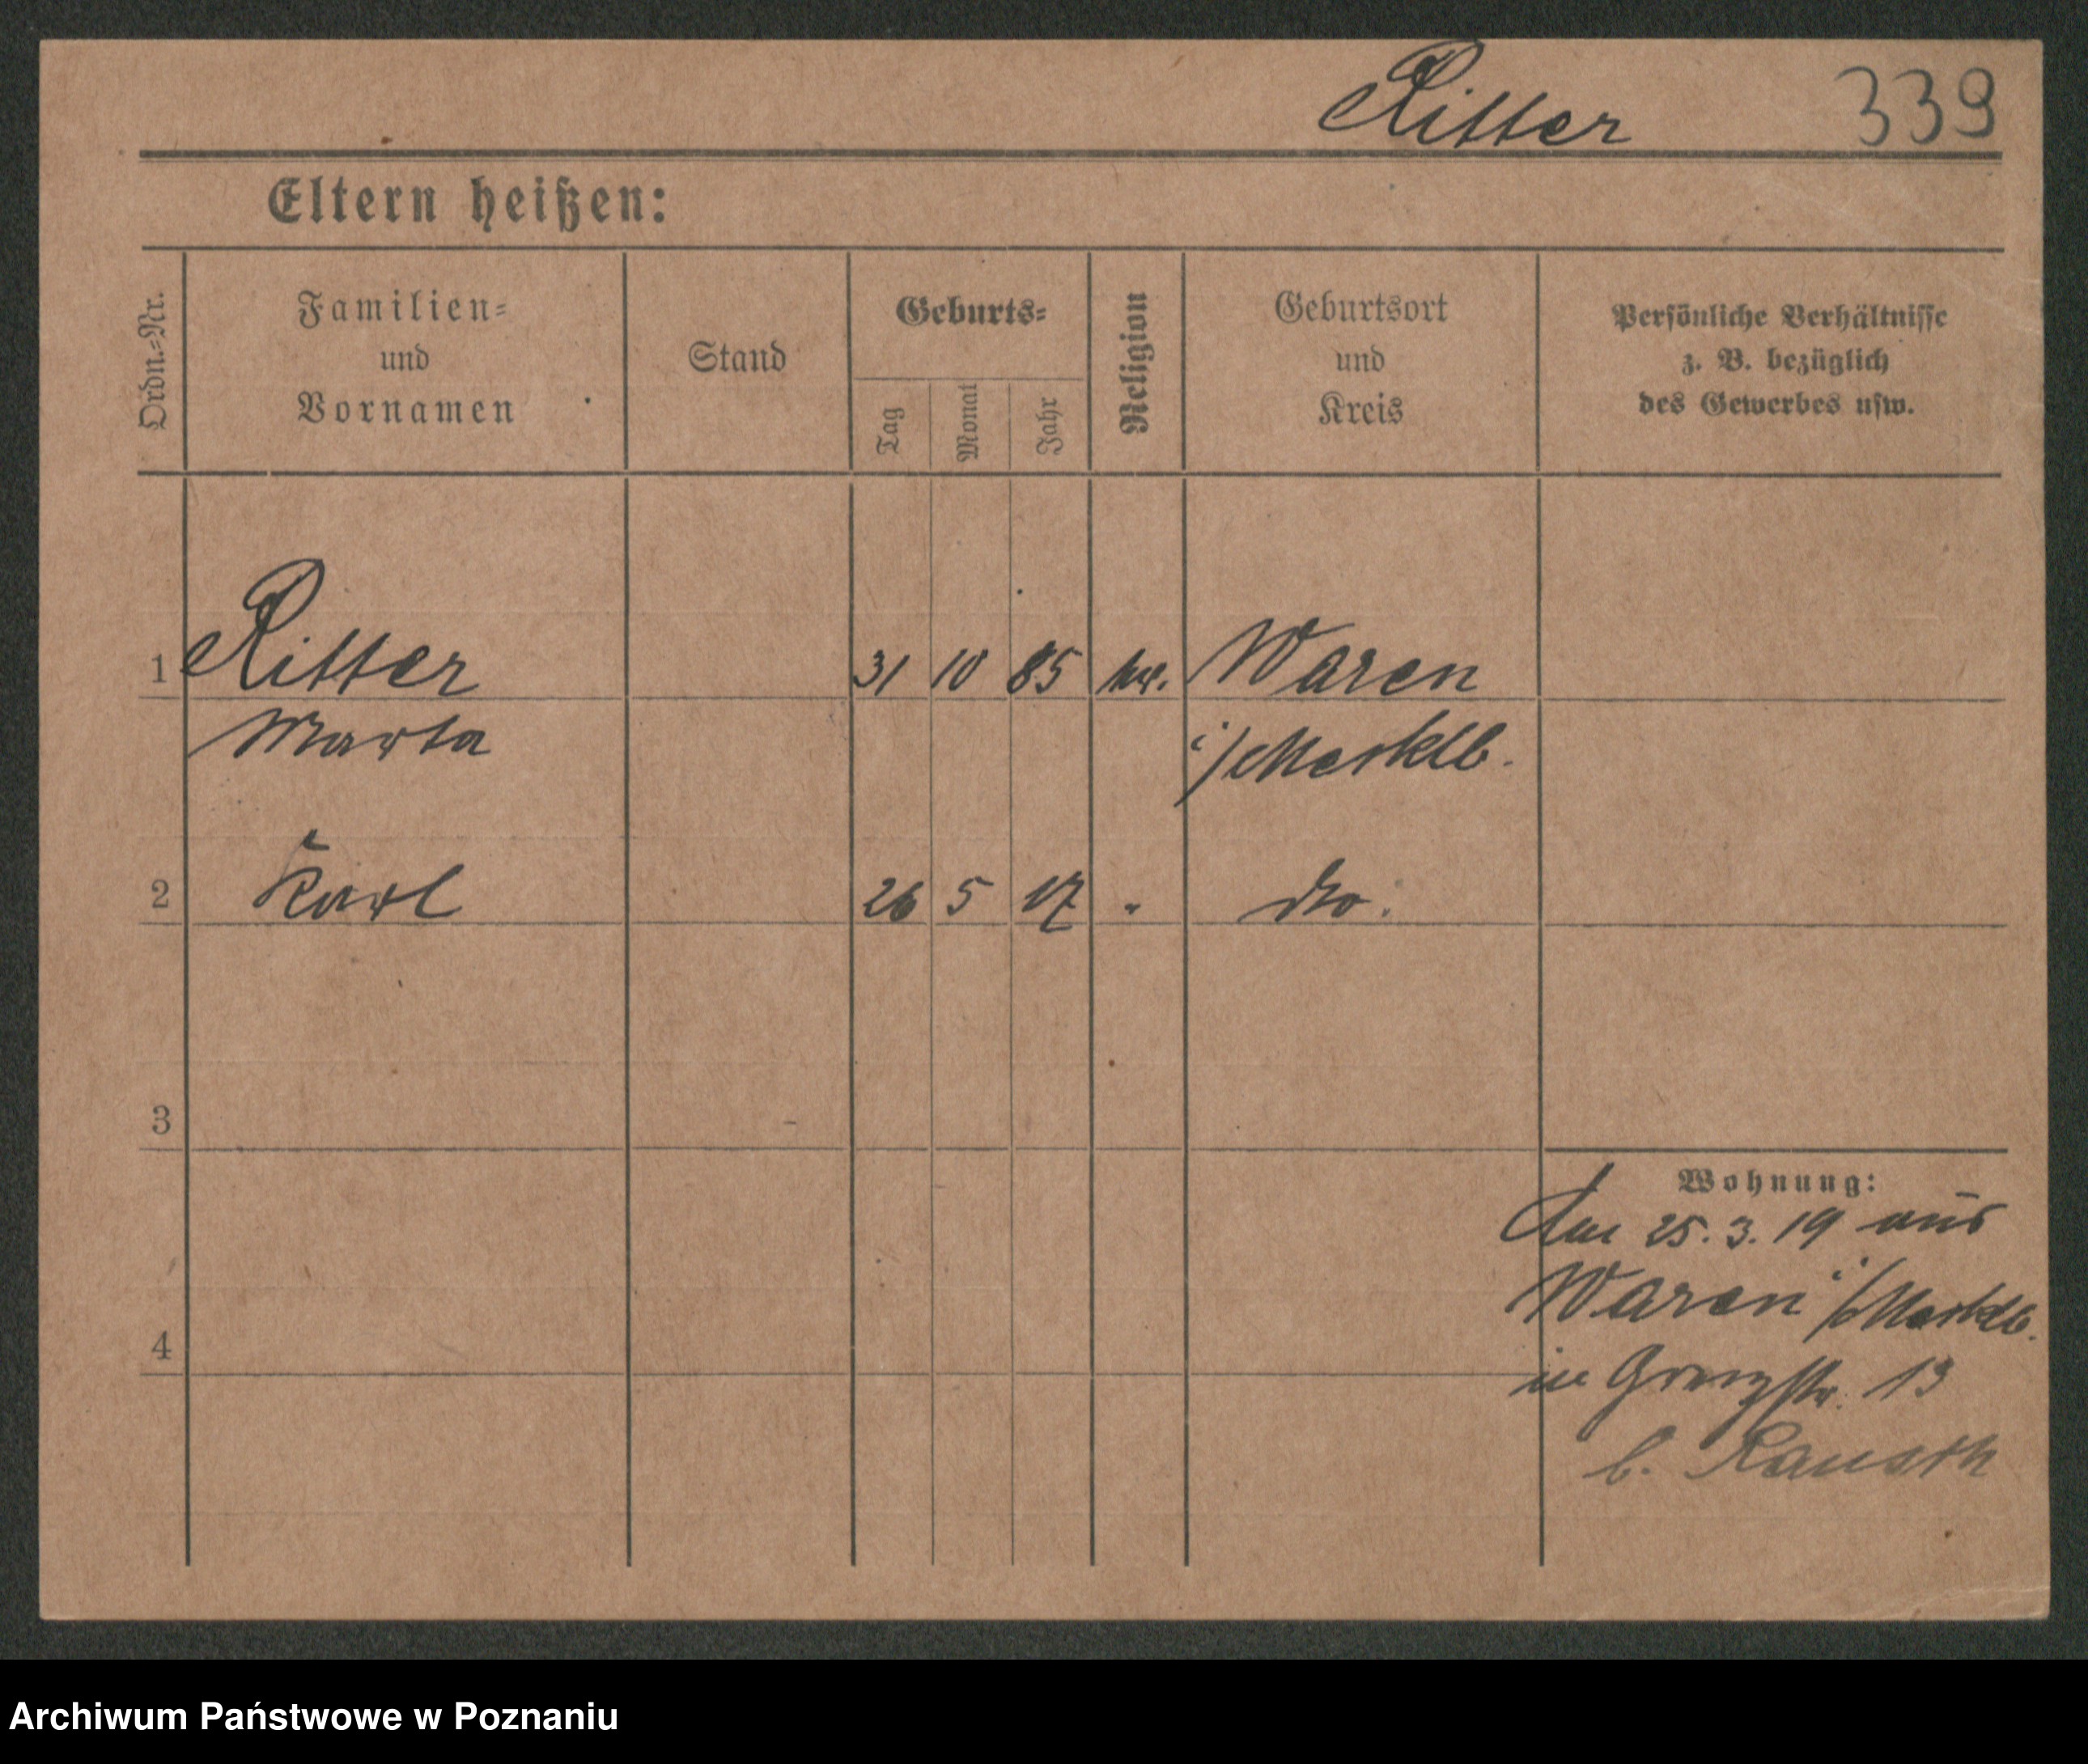 Ritter 339
Eltern heißen:
Ordn.-Nr.
Familien-
und
Vornamen
Stand
Geburts-
Tag
Monat
Jahr
Religion
Geburtsort
und
Kreis
Persönliche Verhältnisse
z. B. bezüglich
des Gewerbes usw.
1 Ritter 31 10 85 Waren
Marta i/Mecklb.
2 Karl 26 5 17 " do.
3
4
Wohnung:
Am 25.3.19 aus
Waren i/Mecklb.
in Grenzstr. 13
b.
Archiwum Państwowe w Poznaniu